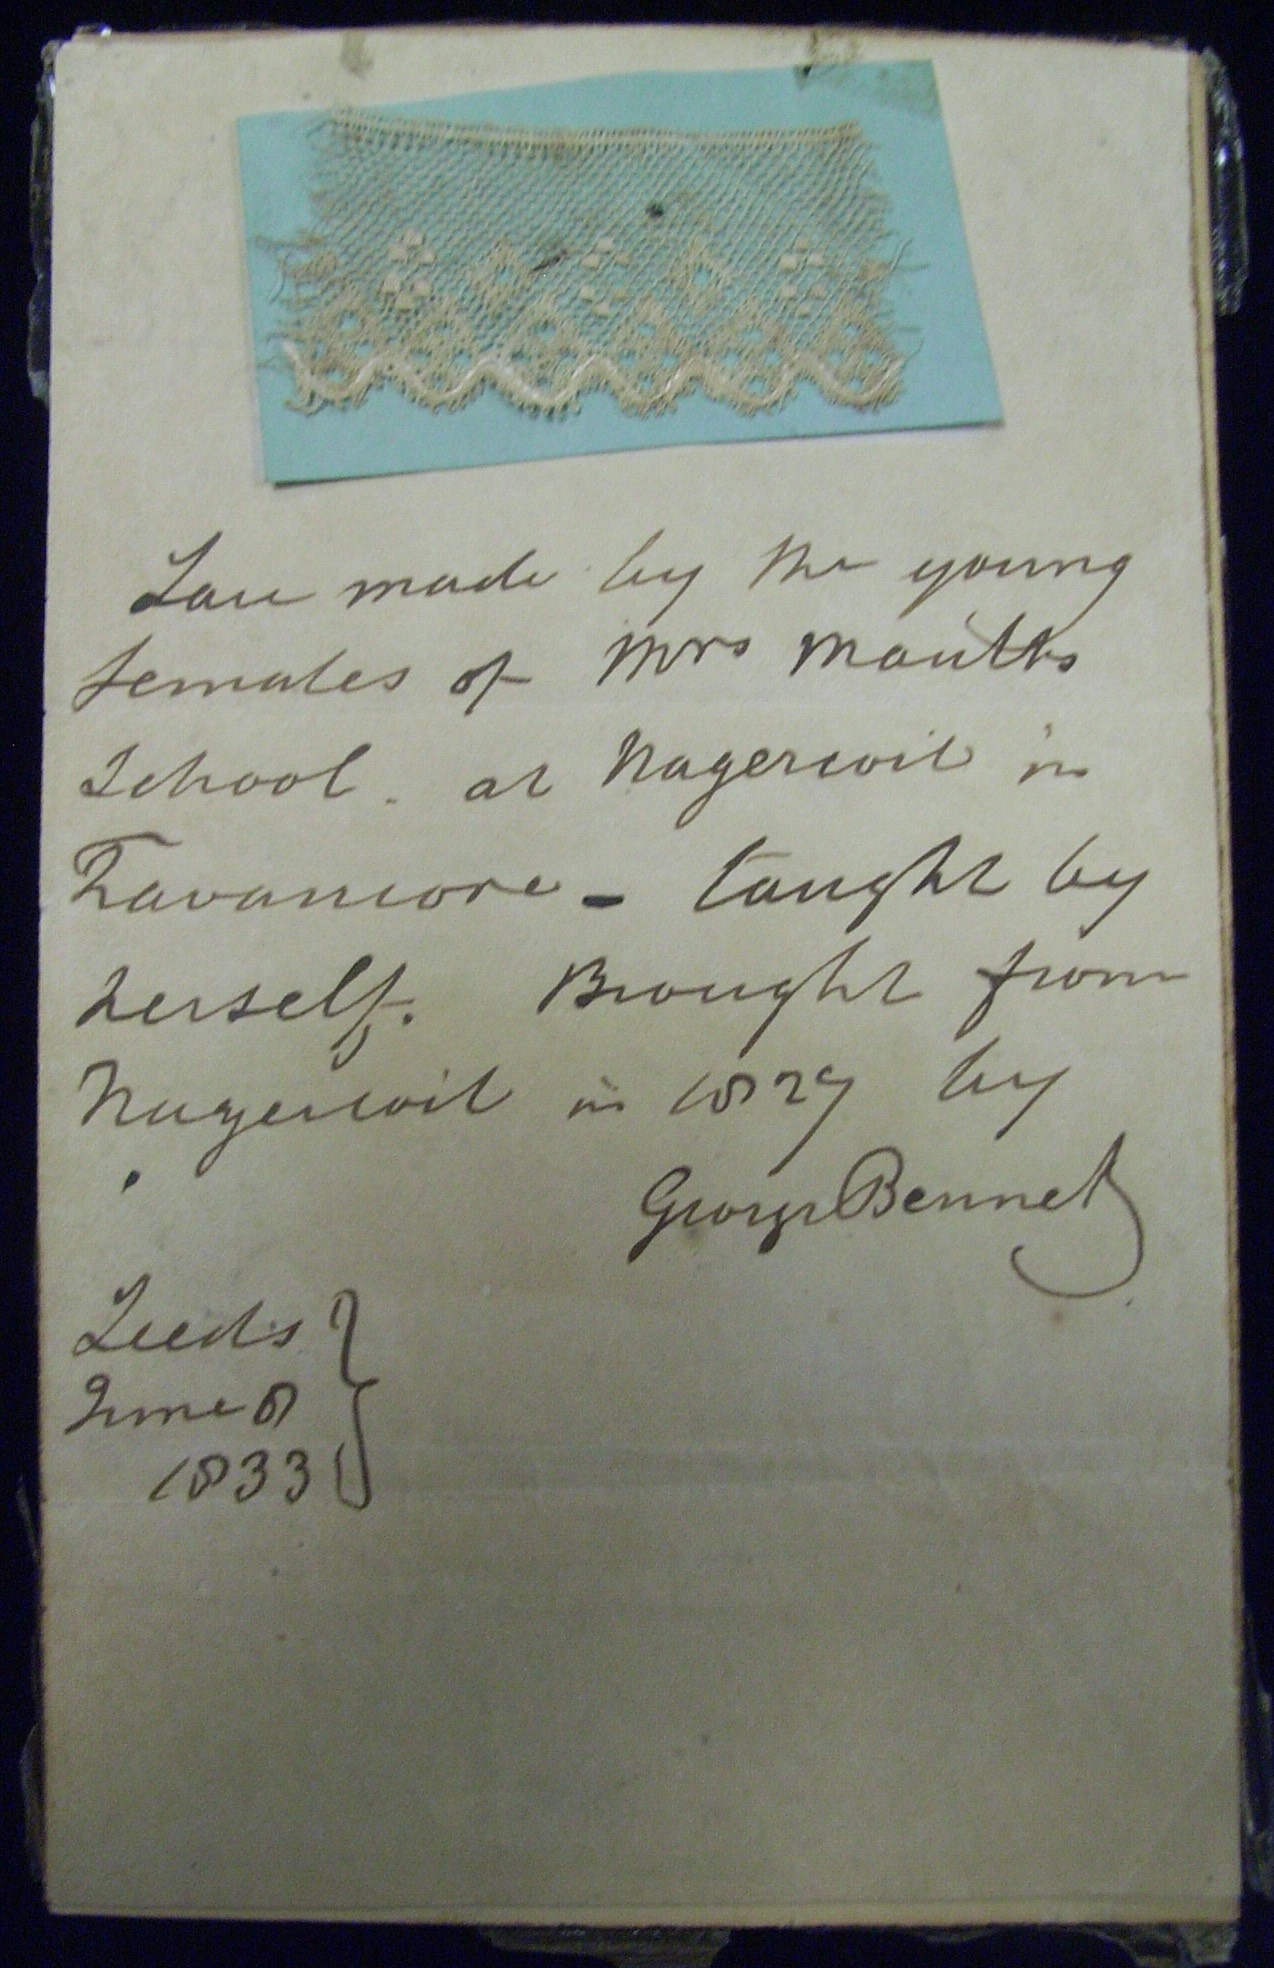 Lace made by the young
females of Mrs Maults
School. at Nagercoil in
Travancore - taught by
herself. Brought from
Nagercoil in 1827 by
George Bennet
Leeds
June 8
1833